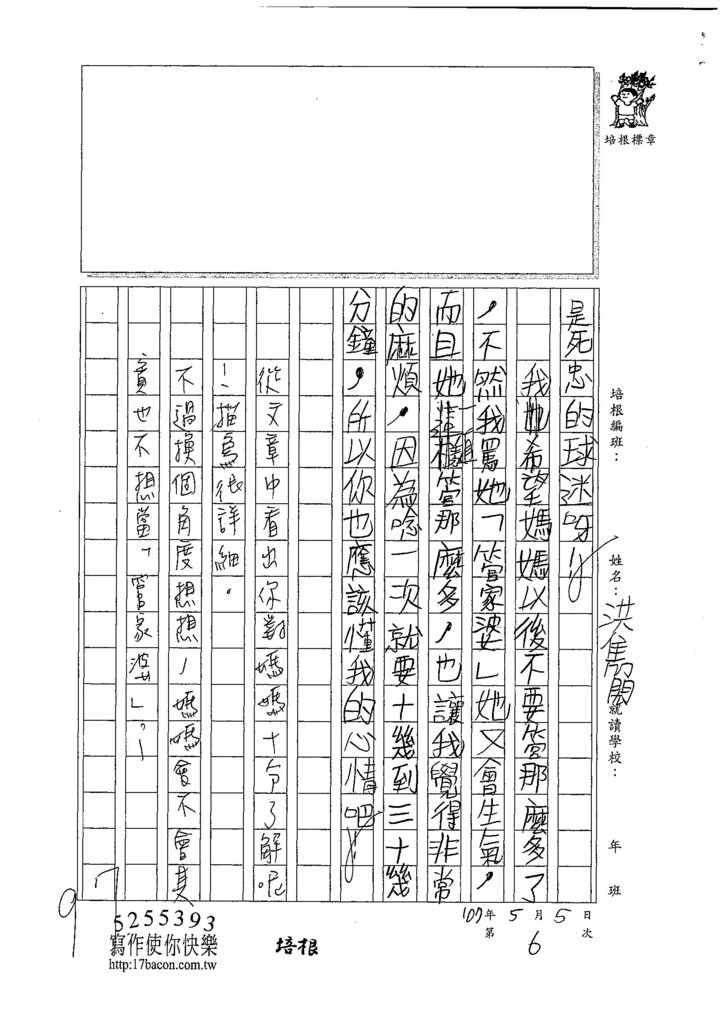 培根標章
培根編班：
姓名：洪雋
就讀學校：
年 班
107年5月5日
第6次
是死忠的球迷呀!!
我也希望媽媽以後不要管那麼多了
，不然我罵她「管家婆」她又會生氣，
而且她這樣管那麼多，也讓我覺得非常
的麻煩，因為唸一次就要十幾到三十幾
分鐘，所以你也應該懂我的心情吧!!
從文章中看出你對媽媽十分了解呢
！描寫很詳細。
不過換個角度想想，媽媽會不會其
實也不想當「管家婆」？！
5255393
寫作使你快樂
http:17bacon.com.tw
培根